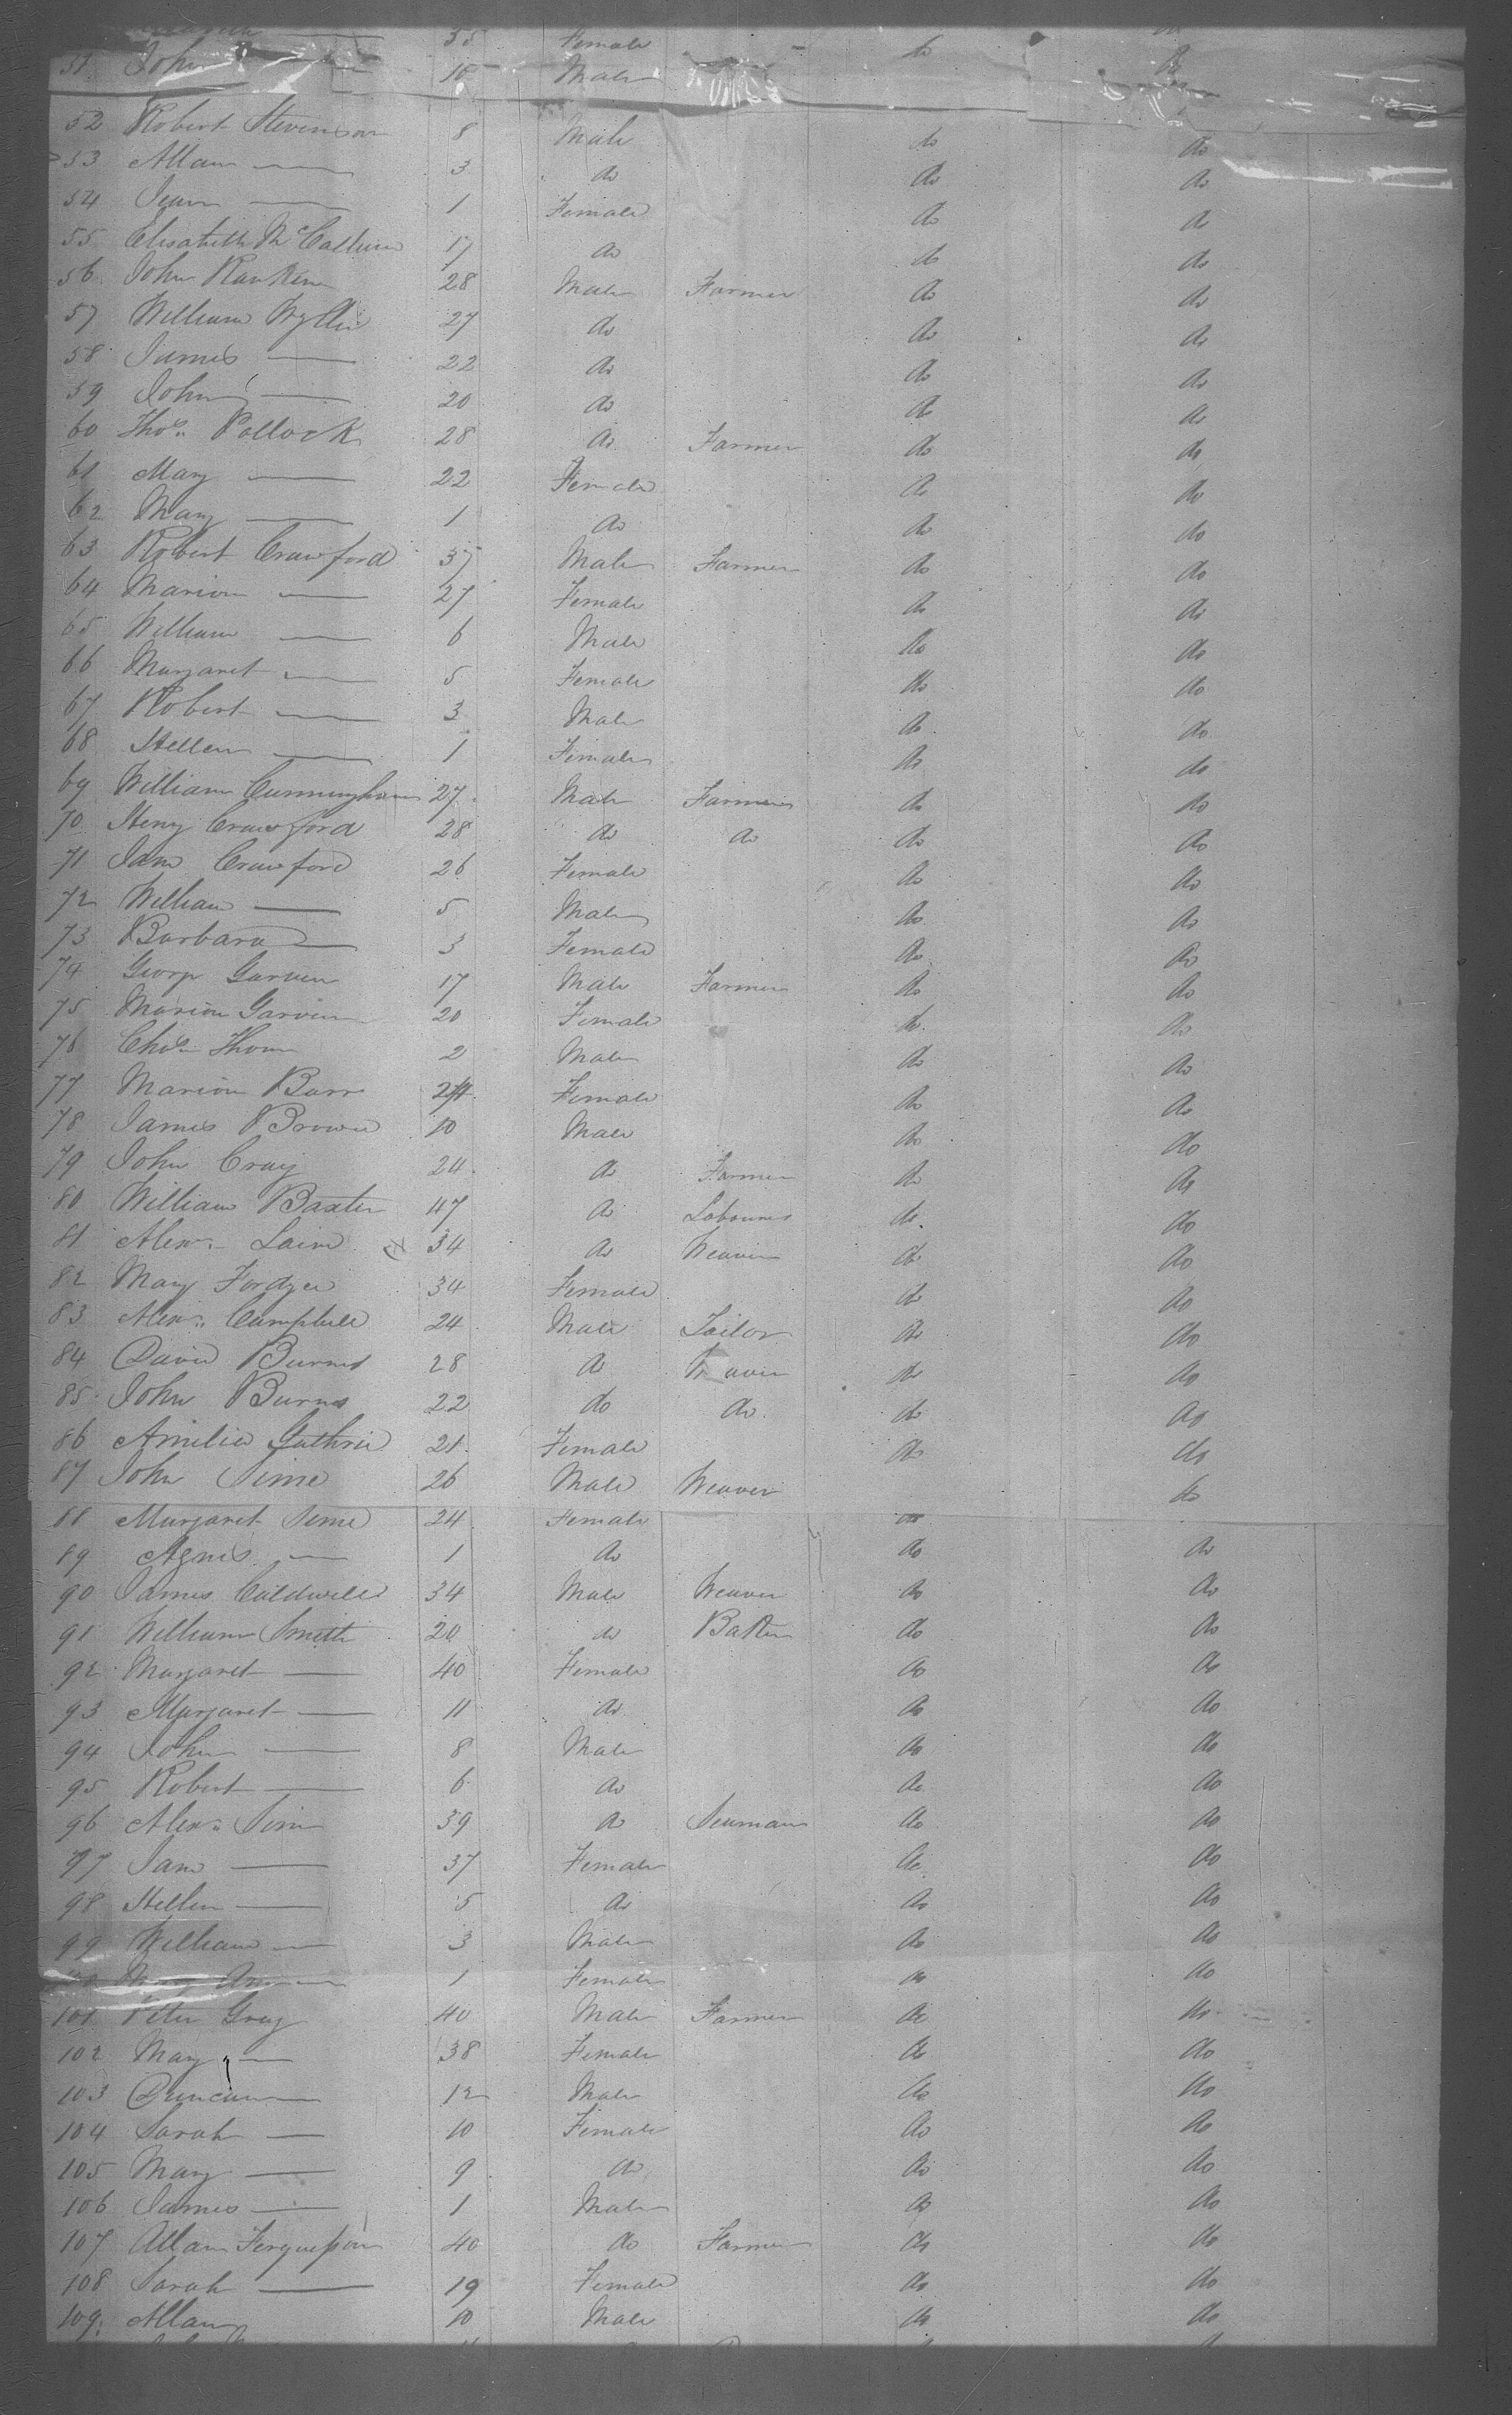 35 Female do do
51 John — 10 Male
52 Robert Stevenson 8 Male do do
53 Allan — 3 do do do
54 Jean — 1 Female do do
55 Elisabeth McCallum 17 do do do
56 John Rankin 28 Male Farmer do do
57 William Wyllie 27 do do do
58 James — 22 do do do
59 John — 20 do do do
60 Thos. Pollock 28 do Farmer do do
61 Mary — 22 Female do do
62 Mary — 1 do do do
63 Robert Crawford 37 Male Farmer do do
64 Marion — 27 Female do do
65 William — 6 Male do do
66 Margaret — 5 Female do do
67 Robert — 3 Male do do
68 Hellen — 1 Female do do
69 William Cunningham 27 Male Farmer do do
70 Heny Crawford 28 do do do do
71 Jane Crawford 26 Female do do
72 William — 5 Male do do
73 Barbara — 3 Female do do
74 George Garven 17 Male Farmer do do
75 Marion Garvin 20 Female do do
76 Chas. Thom 2 Male do do
77 Marion Barr Female do do
78 James Brown 10 Male do do
79 John Craig 24 do Farmer do do
80 William Baxter 47 do Labourer do do
81 Alexr. Laird 34 do Weaver do do
82 Mary Fordyce 34 Female do do
83 Alexr. Campbell 24 Male Tailor do do
84 David Burnes 28 do Weaver do do
85 John Burns 22 do do do do
86 Amelia Guthrie 21 Female do do
87 John Sime 26 Male Weaver do
88 Margaret Sime 24 Female do
89 Agnes — 1 do do do
90 James Caldwell 34 Male Weaver do do
91 William Smith 20 do Baker do do
92 Margaret — 40 Female do do
93 Margaret — 11 do do do
94 John — 8 Male do do
95 Robert — 6 do do do
96 Alexr. Sim 39 do Seaman do do
97 Jane — 37 Female do do
98 Hellen — 5 do do do
99 William — 3 Male do do
100 Mary Ann — 1 Female do do
101 Peter Gray 40 Male Farmer do do
102 Mary — 38 Female do do
103 Duncan — 12 Male do do
104 Sarah — 10 Female do do
105 Mary — 9 do do do
106 James — 1 Male do do
107 Allan Fergusson 40 do Farmer do do
108 Sarah — 19 Female do do
109 Allan 10 Male do do